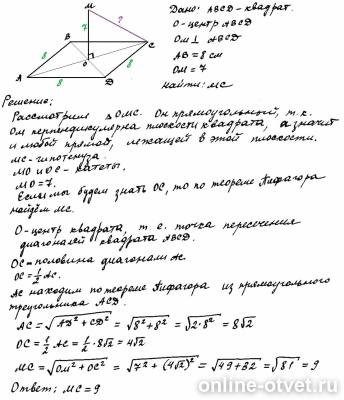 Дано: ABCD-квадрат.
O-центр ABCD
OM⊥ ABCD
AB=8 см
OM=7
Найти: MC
M
7
?
B
C
8
8
O
A
8
D
8
Решение:
Рассмотрим △ OMC. Он прямоугольный, т.к.
OM перпендикулярна плоскости квадрата, а значит
и любой прямой, лежащей в этой плоскости.
MC-гипотенуза.
MO и OC-катеты.
MO=7.
Если мы будем знать OC, то по теореме Пифагора
найдём MC.
O-центр квадрата, т.е. точка пересечения
диагоналей квадрата ABCD.
OC=половина диагонали AC
OC=1/2 AC.
AC находим по теореме Пифагора из прямоугольного
треугольника ACD.
AC=√(AD²+CD²) = √(8²+8²) = √(2·8²) = 8√2
OC=1/2 AC=1/2·8√2=4√2
MC=√(OM²+OC²) = √(7²+(4√2)²) = √(49+32) = √81 = 9
Ответ: MC=9
online-otvet.ru